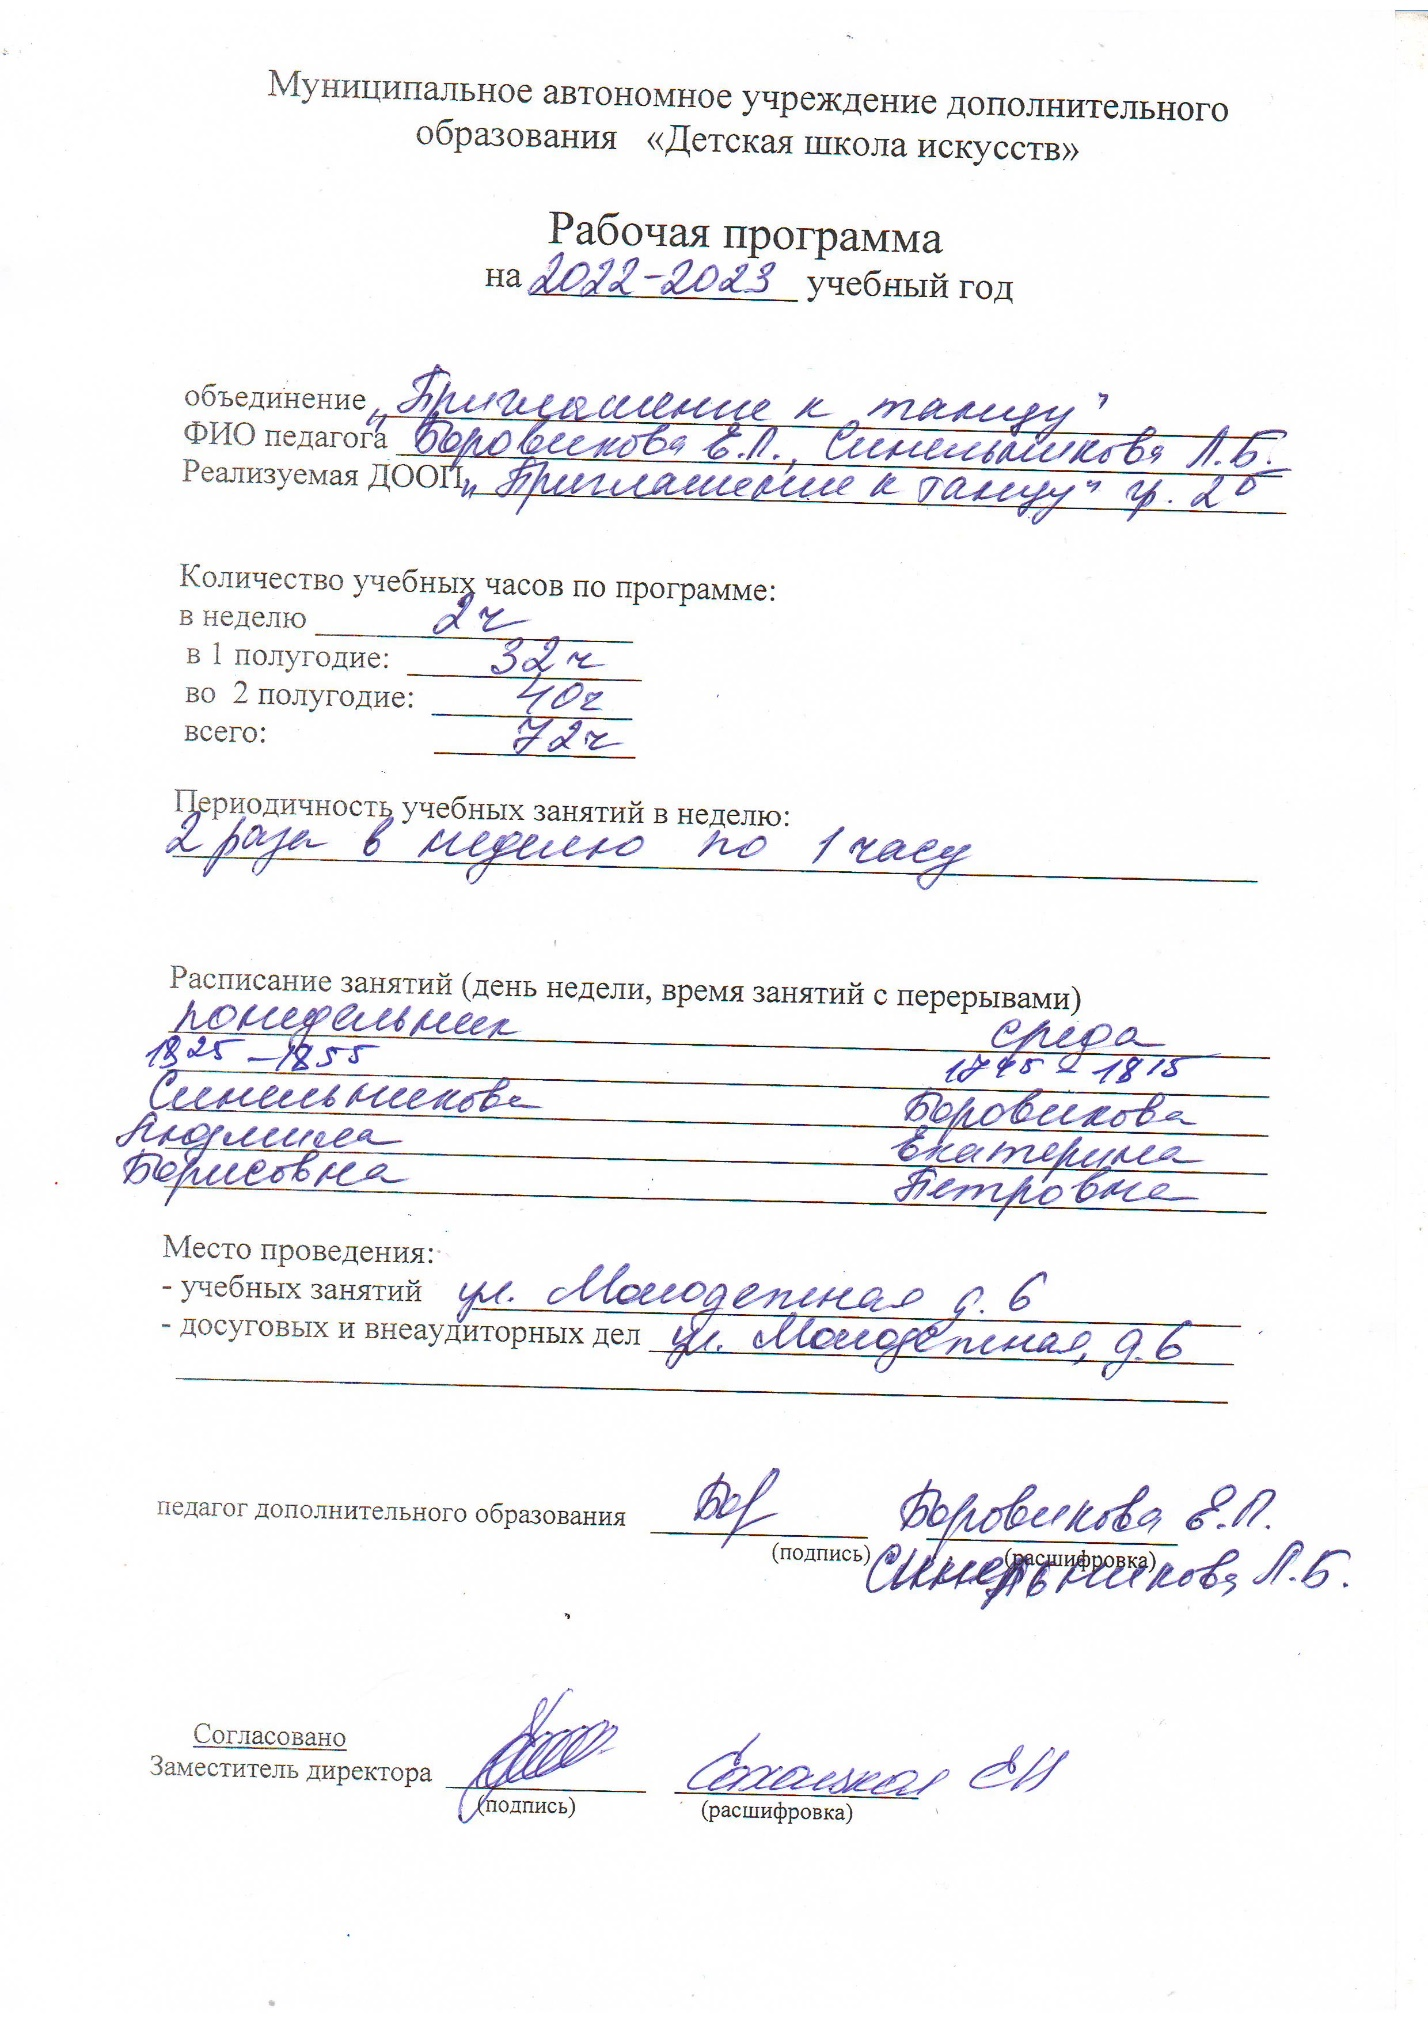 Муниципальное автономное учреждение дополнительного
образования «Детская школа искусств»
Рабочая программа
на 2022-2023 учебный год
объединение „Приглашение к танцу"
ФИО педагога Боровикова Е.П., Синельникова Л.Б.
Реализуемая ДООП „Приглашение к танцу" гр. 2
Количество учебных часов по программе:
в неделю 2ч
в 1 полугодие: 32ч
во 2 полугодие: 40ч
всего: 72ч
Периодичность учебных занятий в неделю:
2 раза в неделю по 1 часу
Расписание занятий (день недели, время занятий с перерывами)
понедельник среда
18 25 – 18 55 17 45 – 18 15
Синельникова Боровикова
Людмила Екатерина
Борисовна Петровна
Место проведения:
- учебных занятий ул. Молодежная д. 6
- досуговых и внеаудиторных дел ул. Молодежная, д. 6
педагог дополнительного образования Бор Боровикова Е.П.
(подпись) (расшифровка)
Синельникова Л.Б.
Согласовано
Заместитель директора
(подпись) (расшифровка)